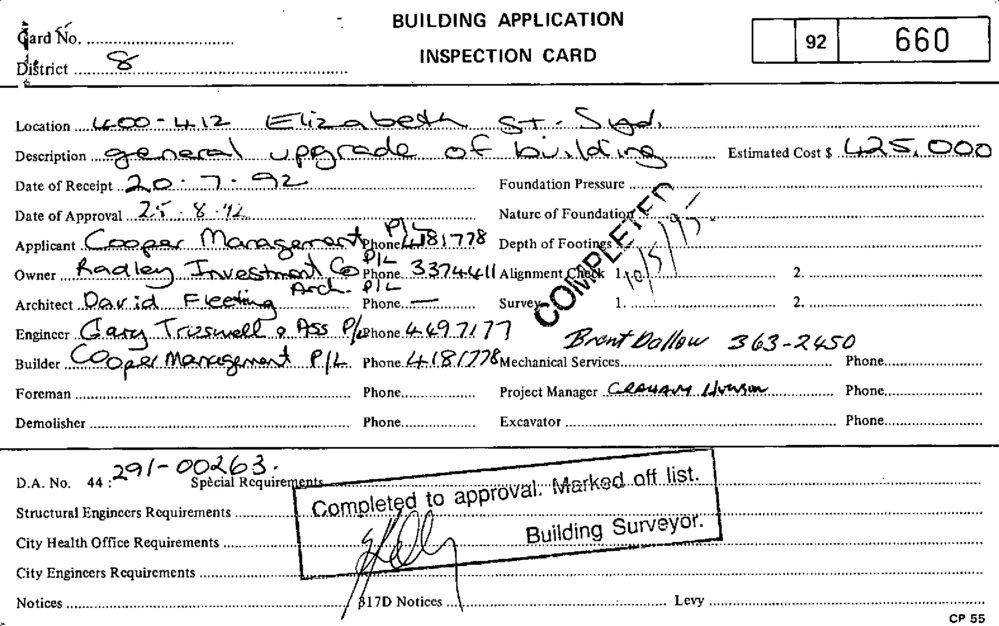 BUILDING APPLICATION
INSPECTION CARD
Card No.
92 660
District 8
Location 400-412 Elizabeth St. Syd.
Description general upgrade of building Estimated Cost $ 425,000
Date of Receipt 20.7.92 Foundation Pressure
Date of Approval 25.8.92 Nature of Foundation
Applicant Cooper Management P/L Phone 4181778 Depth of Footings
Owner Radley Investment Co P/L Phone 3374411 Alignment Check 1. 2.
Architect David Fleeting Arch. P/L Phone — Survey 1. 2.
COMPLETED
10/5/95
Engineer Gary Truswell & Ass P/L Phone 4497177
Brent Dallow 363-2450
Builder Cooper Management P/L Phone 4181778 Mechanical Services Phone
Foreman Phone Project Manager GRAHAM Phone
Demolisher Phone Excavator Phone
D.A. No. 44: 291-00263. Special Requirements
Completed to approval. Marked off list.
Building Surveyor.
Structural Engineers Requirements
City Health Office Requirements
City Engineers Requirements
Notices 317D Notices Levy
CP 55